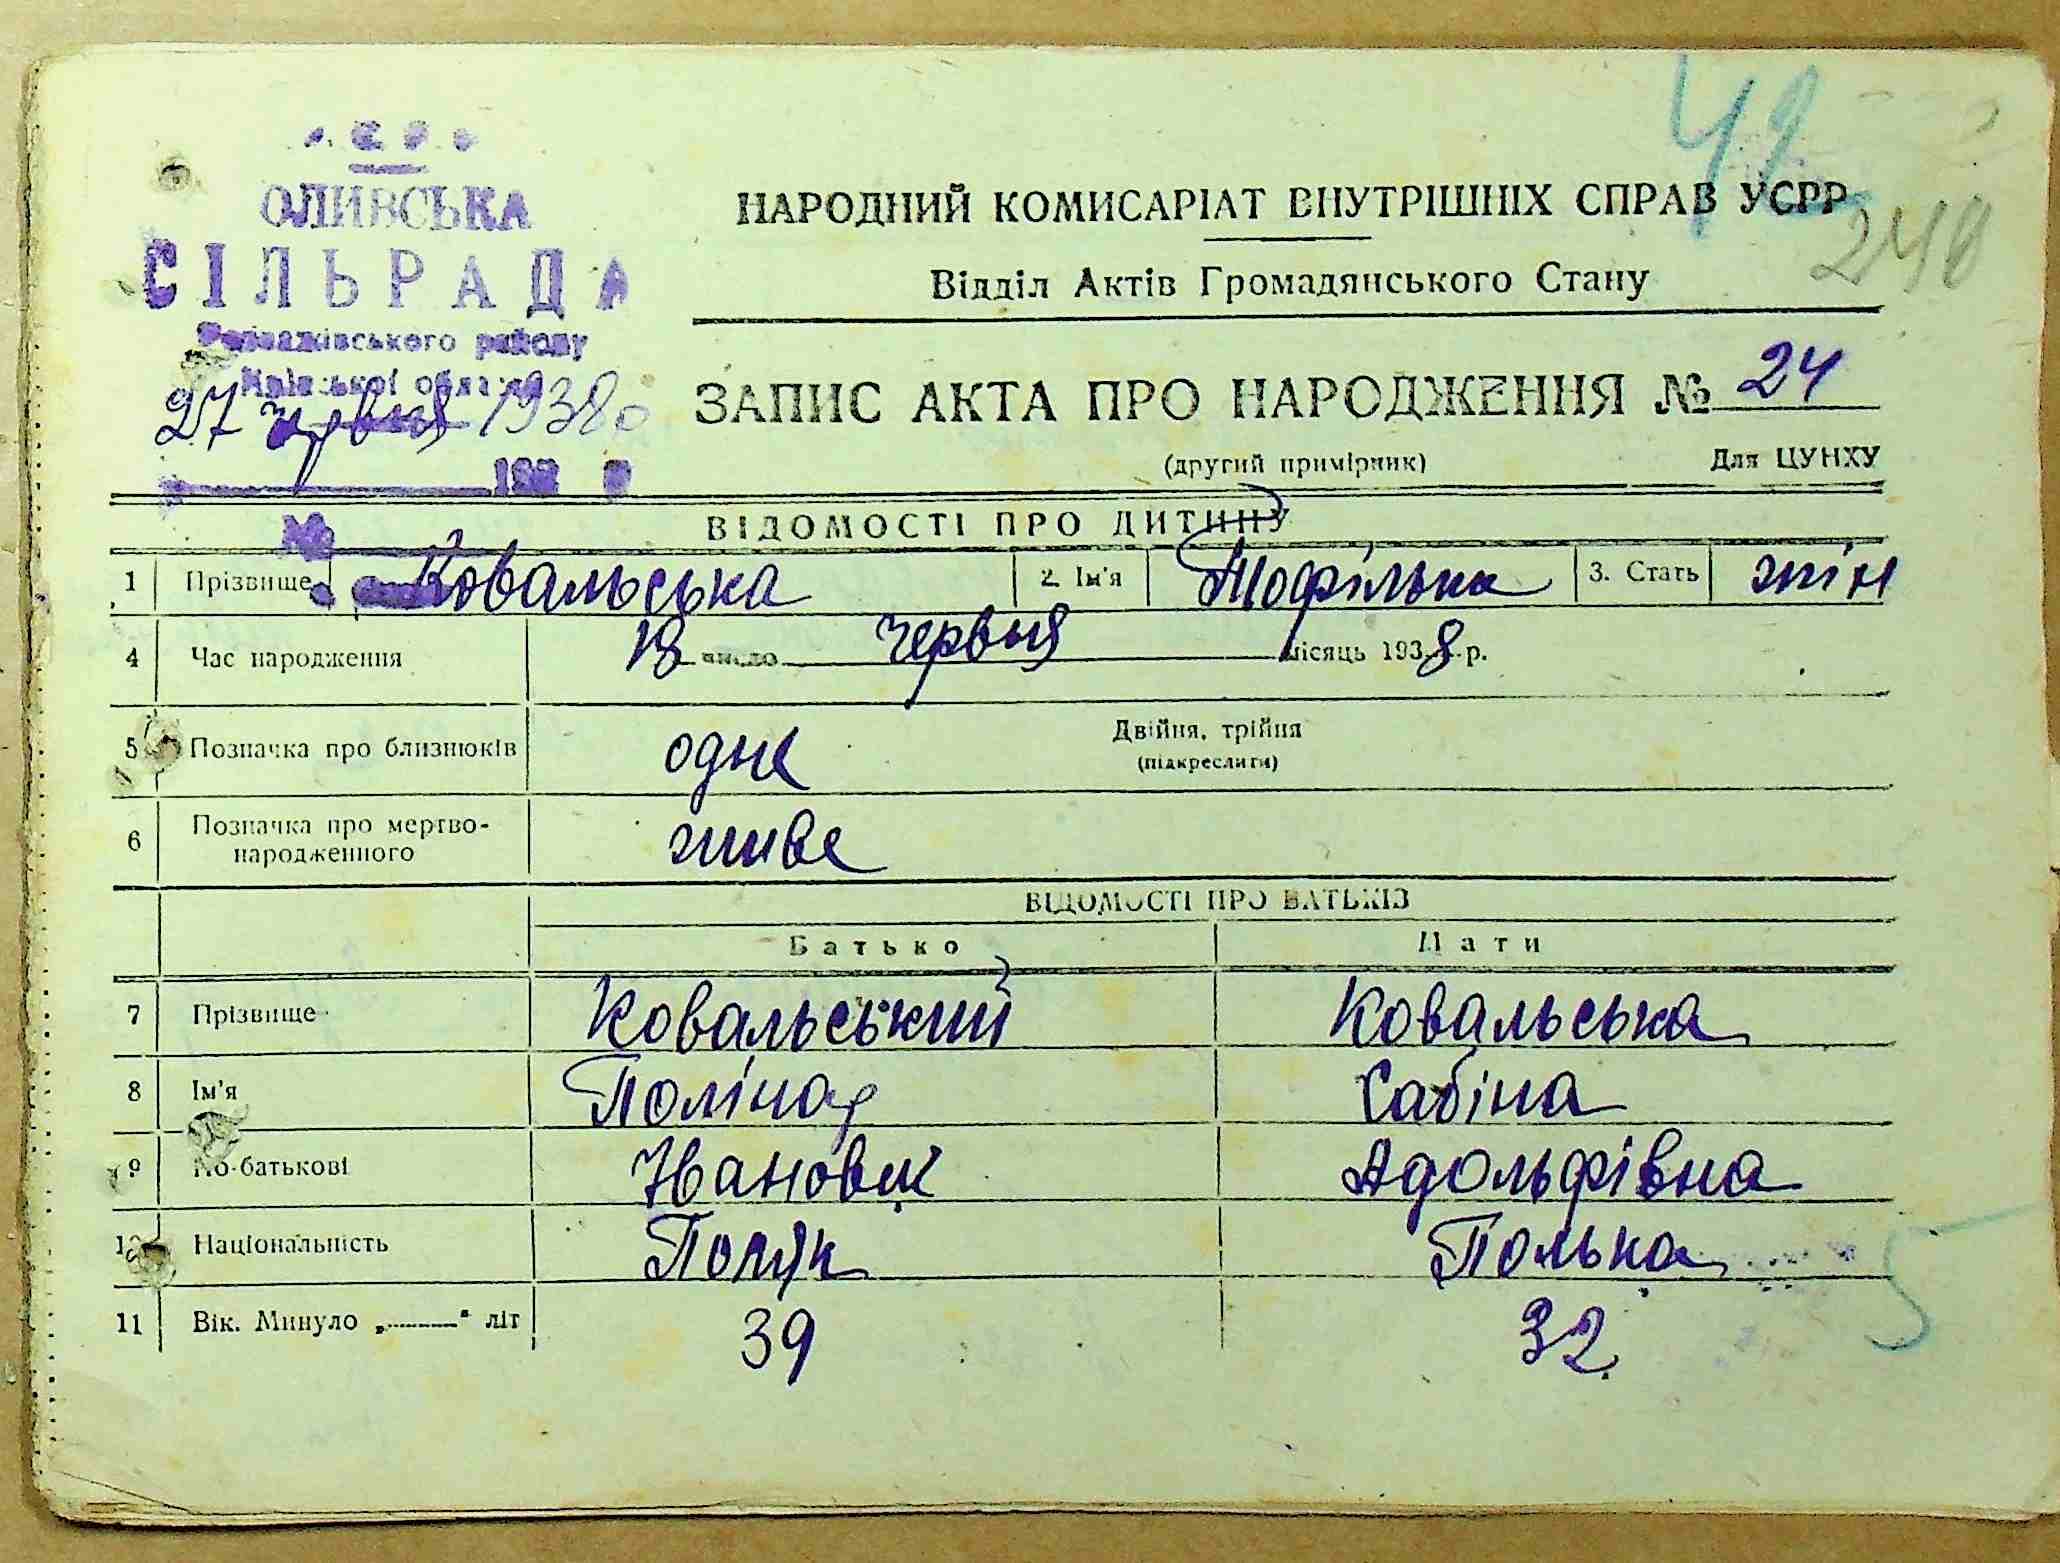 ОЛИВСЬКА
СІЛЬРАДА
району
27 червня 1938 р
№
49
240
НАРОДНИЙ КОМИСАРІАТ ВНУТРІШНІХ СПРАВ УСРР
Відділ Актів Громадянського Стану
ЗАПИС АКТА ПРО НАРОДЖЕННЯ № 24
(другий примірник) Для ЦУНХУ
ВІДОМОСТІ ПРО ДИТИНУ
1 Прізвище Ковальська 2. Ім'я Теофілька 3. Стать жін
4 Час народження 18 число червня місяць 1938 р.
5 Позначка про близнюків одне Двійня, трійня
(підкреслити)
6 Позначка про мертво-
народженного живе
ВІДОМОСТІ ПРО БАТЬКІВ
Батько Мати
7 Прізвище Ковальський Ковальська
8 Ім'я Полінар Сабіна
9 По-батькові Іванович Адольфівна
10 Національність Поляк Полька
11 Вік. Минуло „ “ літ 39 32
5